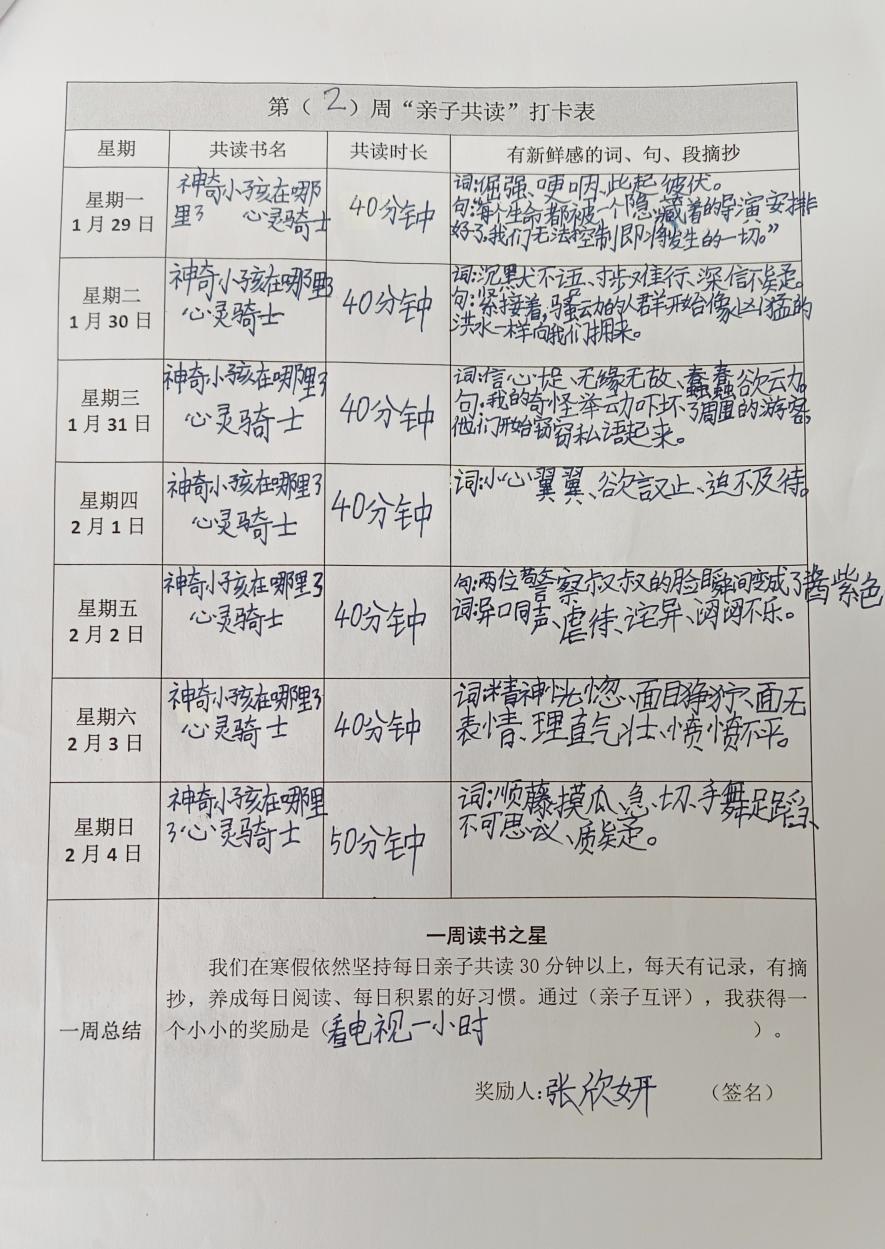 第（2）周“亲子共读”打卡表
星期 共读书名 共读时长 有新鲜感的词、句、段摘抄
星期一
1月29日
神奇小孩在哪
里了 心灵骑士
40分钟
词:倔强、哽咽、此起彼伏。
句:每个生命都被一个隐藏着的导演安排
好了,我们无法控制即将发生的一切。”
星期二
1月30日
神奇小孩在哪里了
心灵骑士
40分钟
词:沉默不语、寸步难行、深信不疑。
句:紧接着,骚动的人群开始像凶猛的
洪水一样向我们拥来。
星期三
1月31日
神奇小孩在哪里了
心灵骑士
40分钟
词:信心十足、无缘无故、蠢蠢欲动。
句:我的奇怪举动吓坏了周围的游客,
他们开始窃窃私语起来。
星期四
2月1日
神奇小孩在哪里了
心灵骑士
40分钟
词:小心翼翼、欲言又止、迫不及待。
星期五
2月2日
神奇小孩在哪里了
心灵骑士
40分钟
句:两位警察叔叔的脸瞬间变成了酱紫色
词:异口同声、虐待、诧异、闷闷不乐。
星期六
2月3日
神奇小孩在哪里了
心灵骑士
40分钟
词:精神恍惚、面目狰狞、面无
表情、理直气壮、愤愤不平。
星期日
2月4日
神奇小孩在哪里
了心灵骑士
50分钟
词:顺藤摸瓜、急切、手舞足蹈、
不可思议、质疑。
一周总结
一周读书之星
我们在寒假依然坚持每日亲子共读30分钟以上，每天有记录，有摘
抄，养成每日阅读、每日积累的好习惯。通过（亲子互评），我获得一
个小小的奖励是（看电视一小时 ）。
奖励人:张欣妍 （签名）